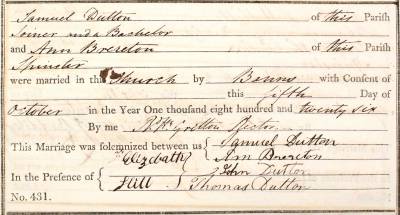 Samuel Dutton of this Parish
Joiner and a Bachelor
and Ann Brereton of this Parish
Spinster
were married in this Church by Banns with Consent of
this fifth Day of
October in the Year One thousand eight hundred and twenty six
By me Gretton Rector
This Marriage was solemnized between us { Samuel Dutton
Ann Brereton
In the Presence of { Elizabeth Hill } John Dutton
Thomas Dutton
No. 431.